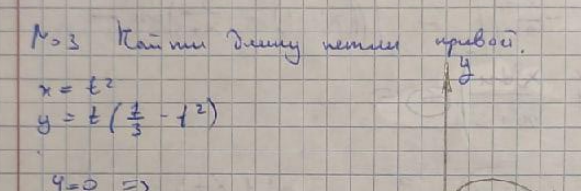 №3 Найти длину петли кривой.
y
x = t²
y = t(t/3 - t²)
y=0 =>